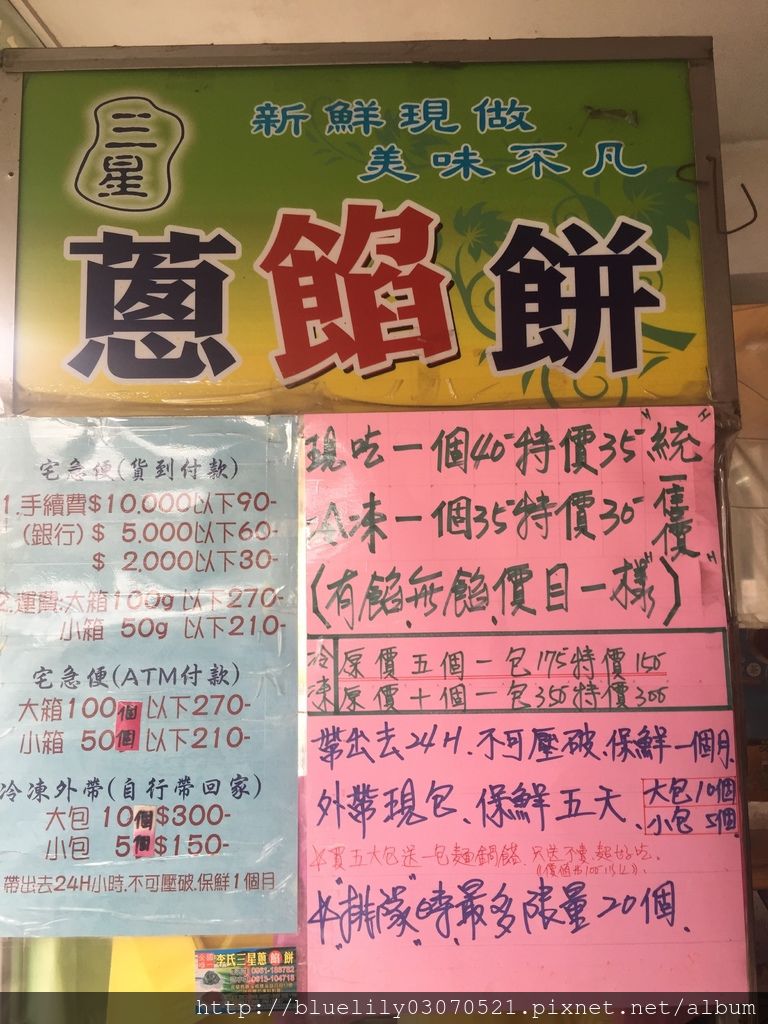 三星
新鮮現做
美味不凡
蔥餡餅
宅急便(貨到付款)
1.手續費$10.000以下90-
(銀行)$ 5,000以下60-
$ 2,000以下30-
2.運費:大箱100g以下270-
小箱 50g 以下210-
宅急便(ATM付款)
大箱100個以下270-
小箱 50個以下210-
冷凍外帶(自行帶回家)
大包 10個$300-
小包 5個$150-
帶出去24H小時,不可壓破,保鮮1個月
現吃一個40-特價35-統一售價
冷凍一個35-特價30-
(有餡.無餡.價目一樣)
冷凍
原價五個一包175特價150
原價十個一包350特價300
帶出去24H.不可壓破.保鮮一個月
外帶現包.保鮮五天.
大包10個
小包 5個
*買五大包送一包
*"排隊"時最多限量20個.
李氏三星蔥餡餅
http://bluelily03070521.pixnet.net/album